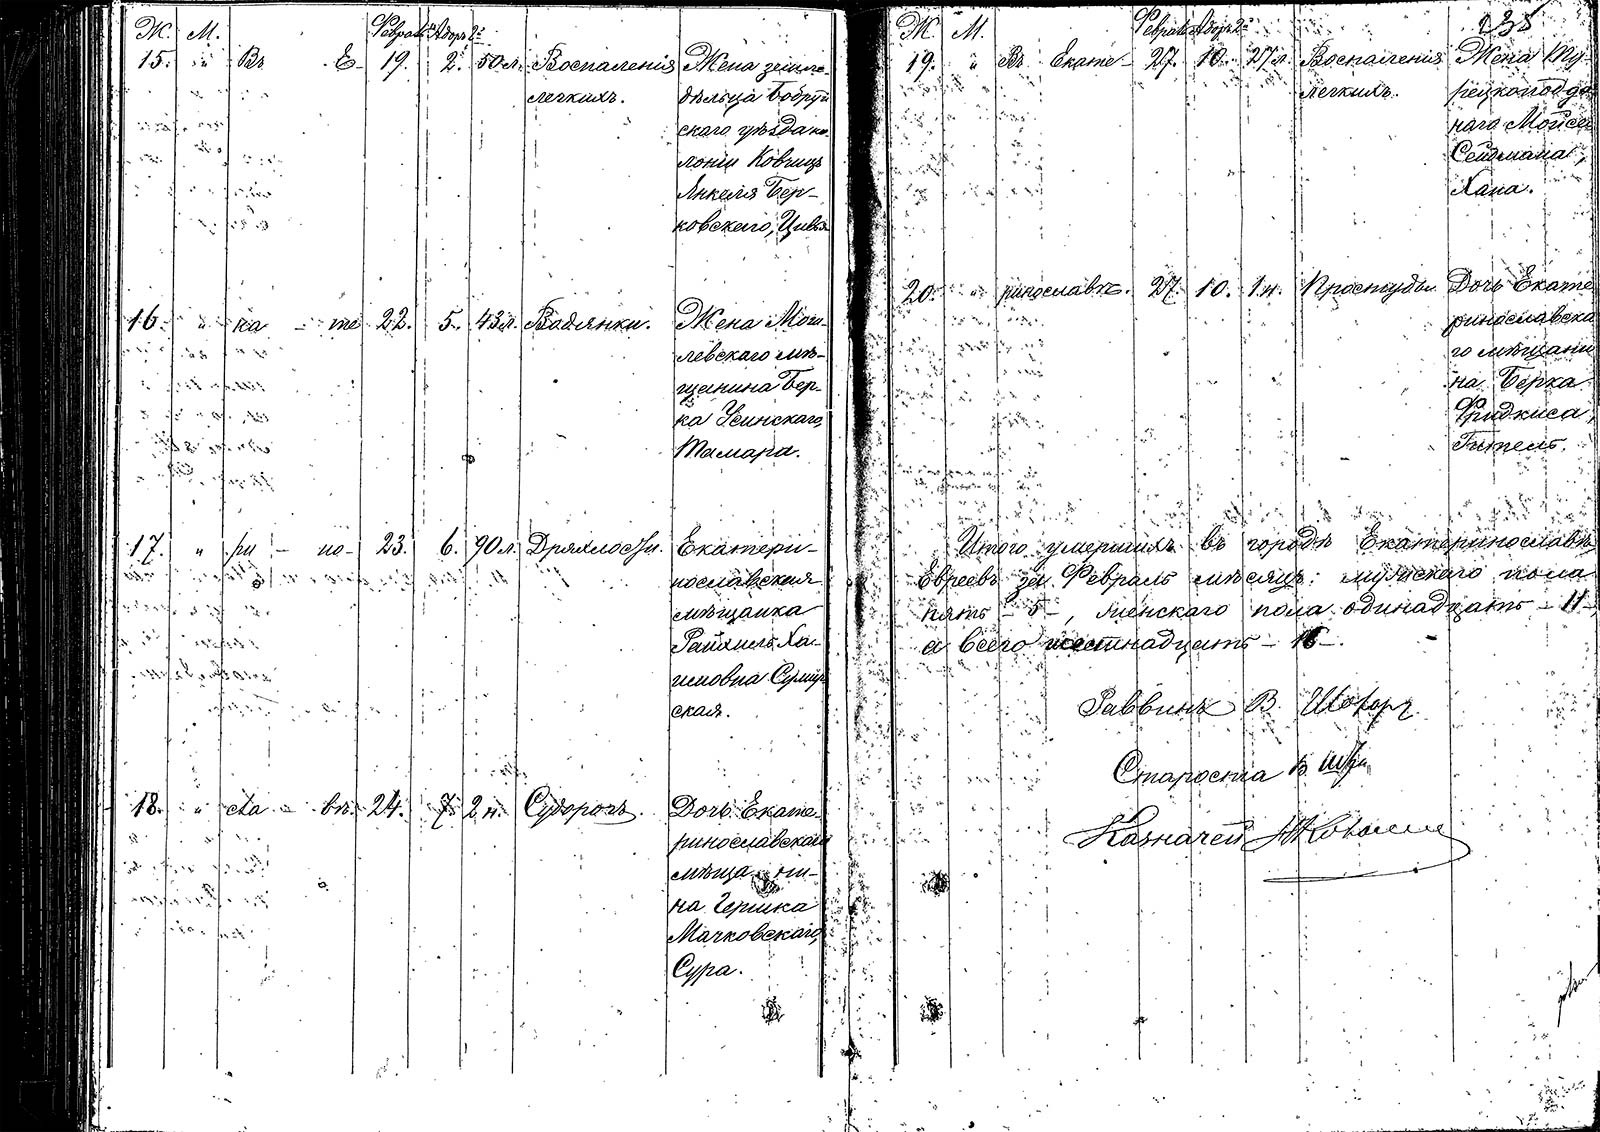 Ж. М. Февраль Адоръ 2й
15. " Въ Е- 19. 2. 50 л. Воспаленія Жена земле-
легкихъ. дѣльца Бобруй
скаго уѣзда ко
лоніи Ковчицъ
Янкеля Бер-
ковскаго, Цивья
16. " ка - те 22. 5. 43 л. Водянки. Жена Моги-
левскаго мѣ-
щанина Бер-
ка Усинскаго,
Тамара.
17. " ри - но- 23. 6. 90 л. Дряхлости. Екатери-
нославская
мѣщанка
Райхиль Ха-
имовна
ская.
18. " сла - вѣ. 24. 7. 2 н. Судорогъ. Дочь Екате-
ринославскаго
мѣщани-
на Гершка
Мачковскаго,
Сура.
235
Ж. М. Февраль Адоръ 2й
19. " Въ Екате- 27. 10. 27 л. Воспаленія Жена Ту-
легкихъ. рецкоподда
наго Мойсея
Сейдмана,
Хана.
20. " ринославѣ. 27. 10. 1 н. Простуды. Дочь Екате
ринославска
го мѣщани
на Берка
Фридкиса,
Гитель.
Итого умершихъ въ городѣ Екатеринославѣ
Евреевъ за Февраль мѣсяцъ: мужскаго пола
пять - 5 -, женскаго пола одинадцать - 11 -,
а всего шестнадцать - 16 -.
Раввинъ В. Шохоръ
Староста В.
Казначей